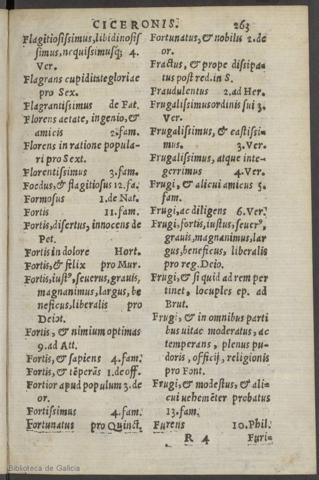 CICERONIS. 263
Flagitiosissimus, libidinosis
simus, nequissimusq; 4.
Ver.
Flagrans cupiditate gloriae
pro Sex.
Flagrantissimus de Fat.
Florens aetate, ingenio, &
amicis 2. fam.
Florens in ratione popula-
ri pro Sext.
Florentissimus 3. fam.
Foedus, & flagitiosus 12. fa.
Formosus 1. de Nat.
Fortis 11. fam.
Fortis, disertus, innocens de
Pet.
Fortis in dolore Hort.
Fortis, & felix pro Mur.
Fortis, iust9, seuerus, grauis,
magnanimus, largus, be
neficus, liberalis pro
Deiot.
Fortis, & nimium optimas
9. ad Att.
Fortis, & sapiens 4. fam.
Fortis, & tēperās 1. de off.
Fortior apud populum 3. de
or.
Fortissimus 4. fam.
Fortunatus pro Quinct.
Fortunatus, & nobilis 2. de
or.
Fractus, & prope dissipa-
tus post red. in S.
Fraudulentus 2. ad Her.
Frugalissimus ordinis sui 3.
Ver.
Frugalissimus, & castissi-
mus. 3. Ver.
Frugalissimus, atque inte-
gerrimus 4. Ver.
Frugi, & alicui amicus 3.
fam.
Frugi, ac diligens 6. Ver.
Frugi, fortis, iustus, seuer9,
grauis, magnanimus, lar
gus, beneficus, liberalis
pro reg. Deio.
Frugi, & si quid ad rem per
tinet, locuples ep. ad
Brut.
Frugi, & in omnibus parti
bus uitae moderatus, ac
temperans, plenus pu-
doris, officij, religionis
pro Font.
Frugi, & modestus, & ali-
cui uehemēter probatus
13. fam.
Furens 10. Phil.
R 4 Furi-
Biblioteca de Galicia